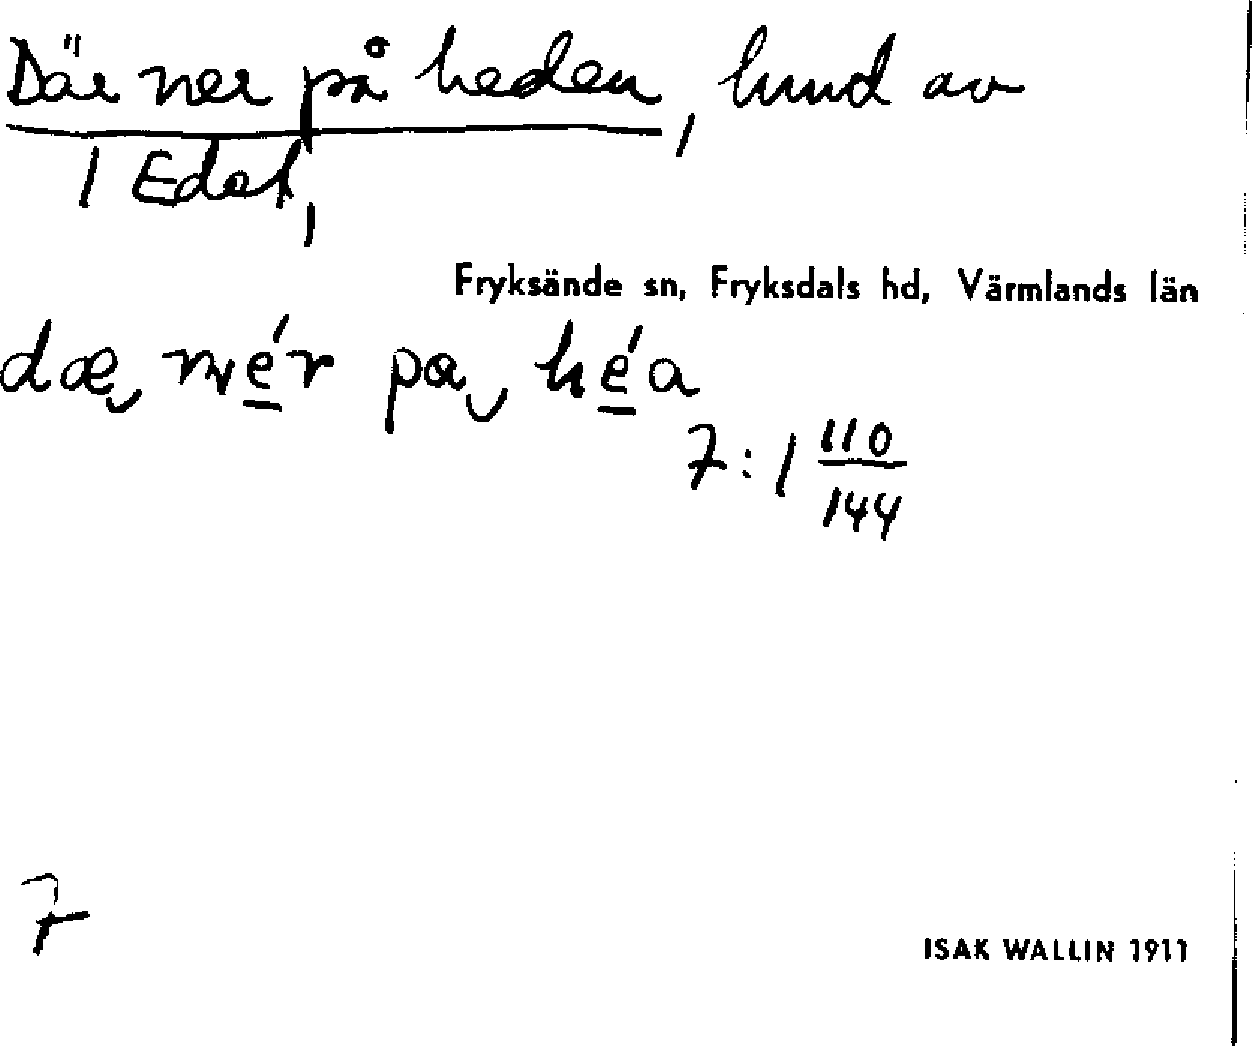 Där ner på heden, lund av
1 Edet,
Fryksände sn, Fryksdals hd, Värmlands län
dæ nér pa héa
7:1 110/144
7
ISAK WALLIN 1911